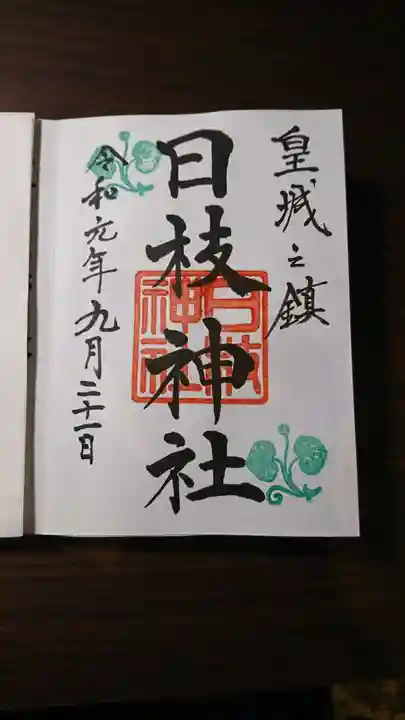 皇城之鎮
日枝神社
日枝神社
令和元年九月二十一日